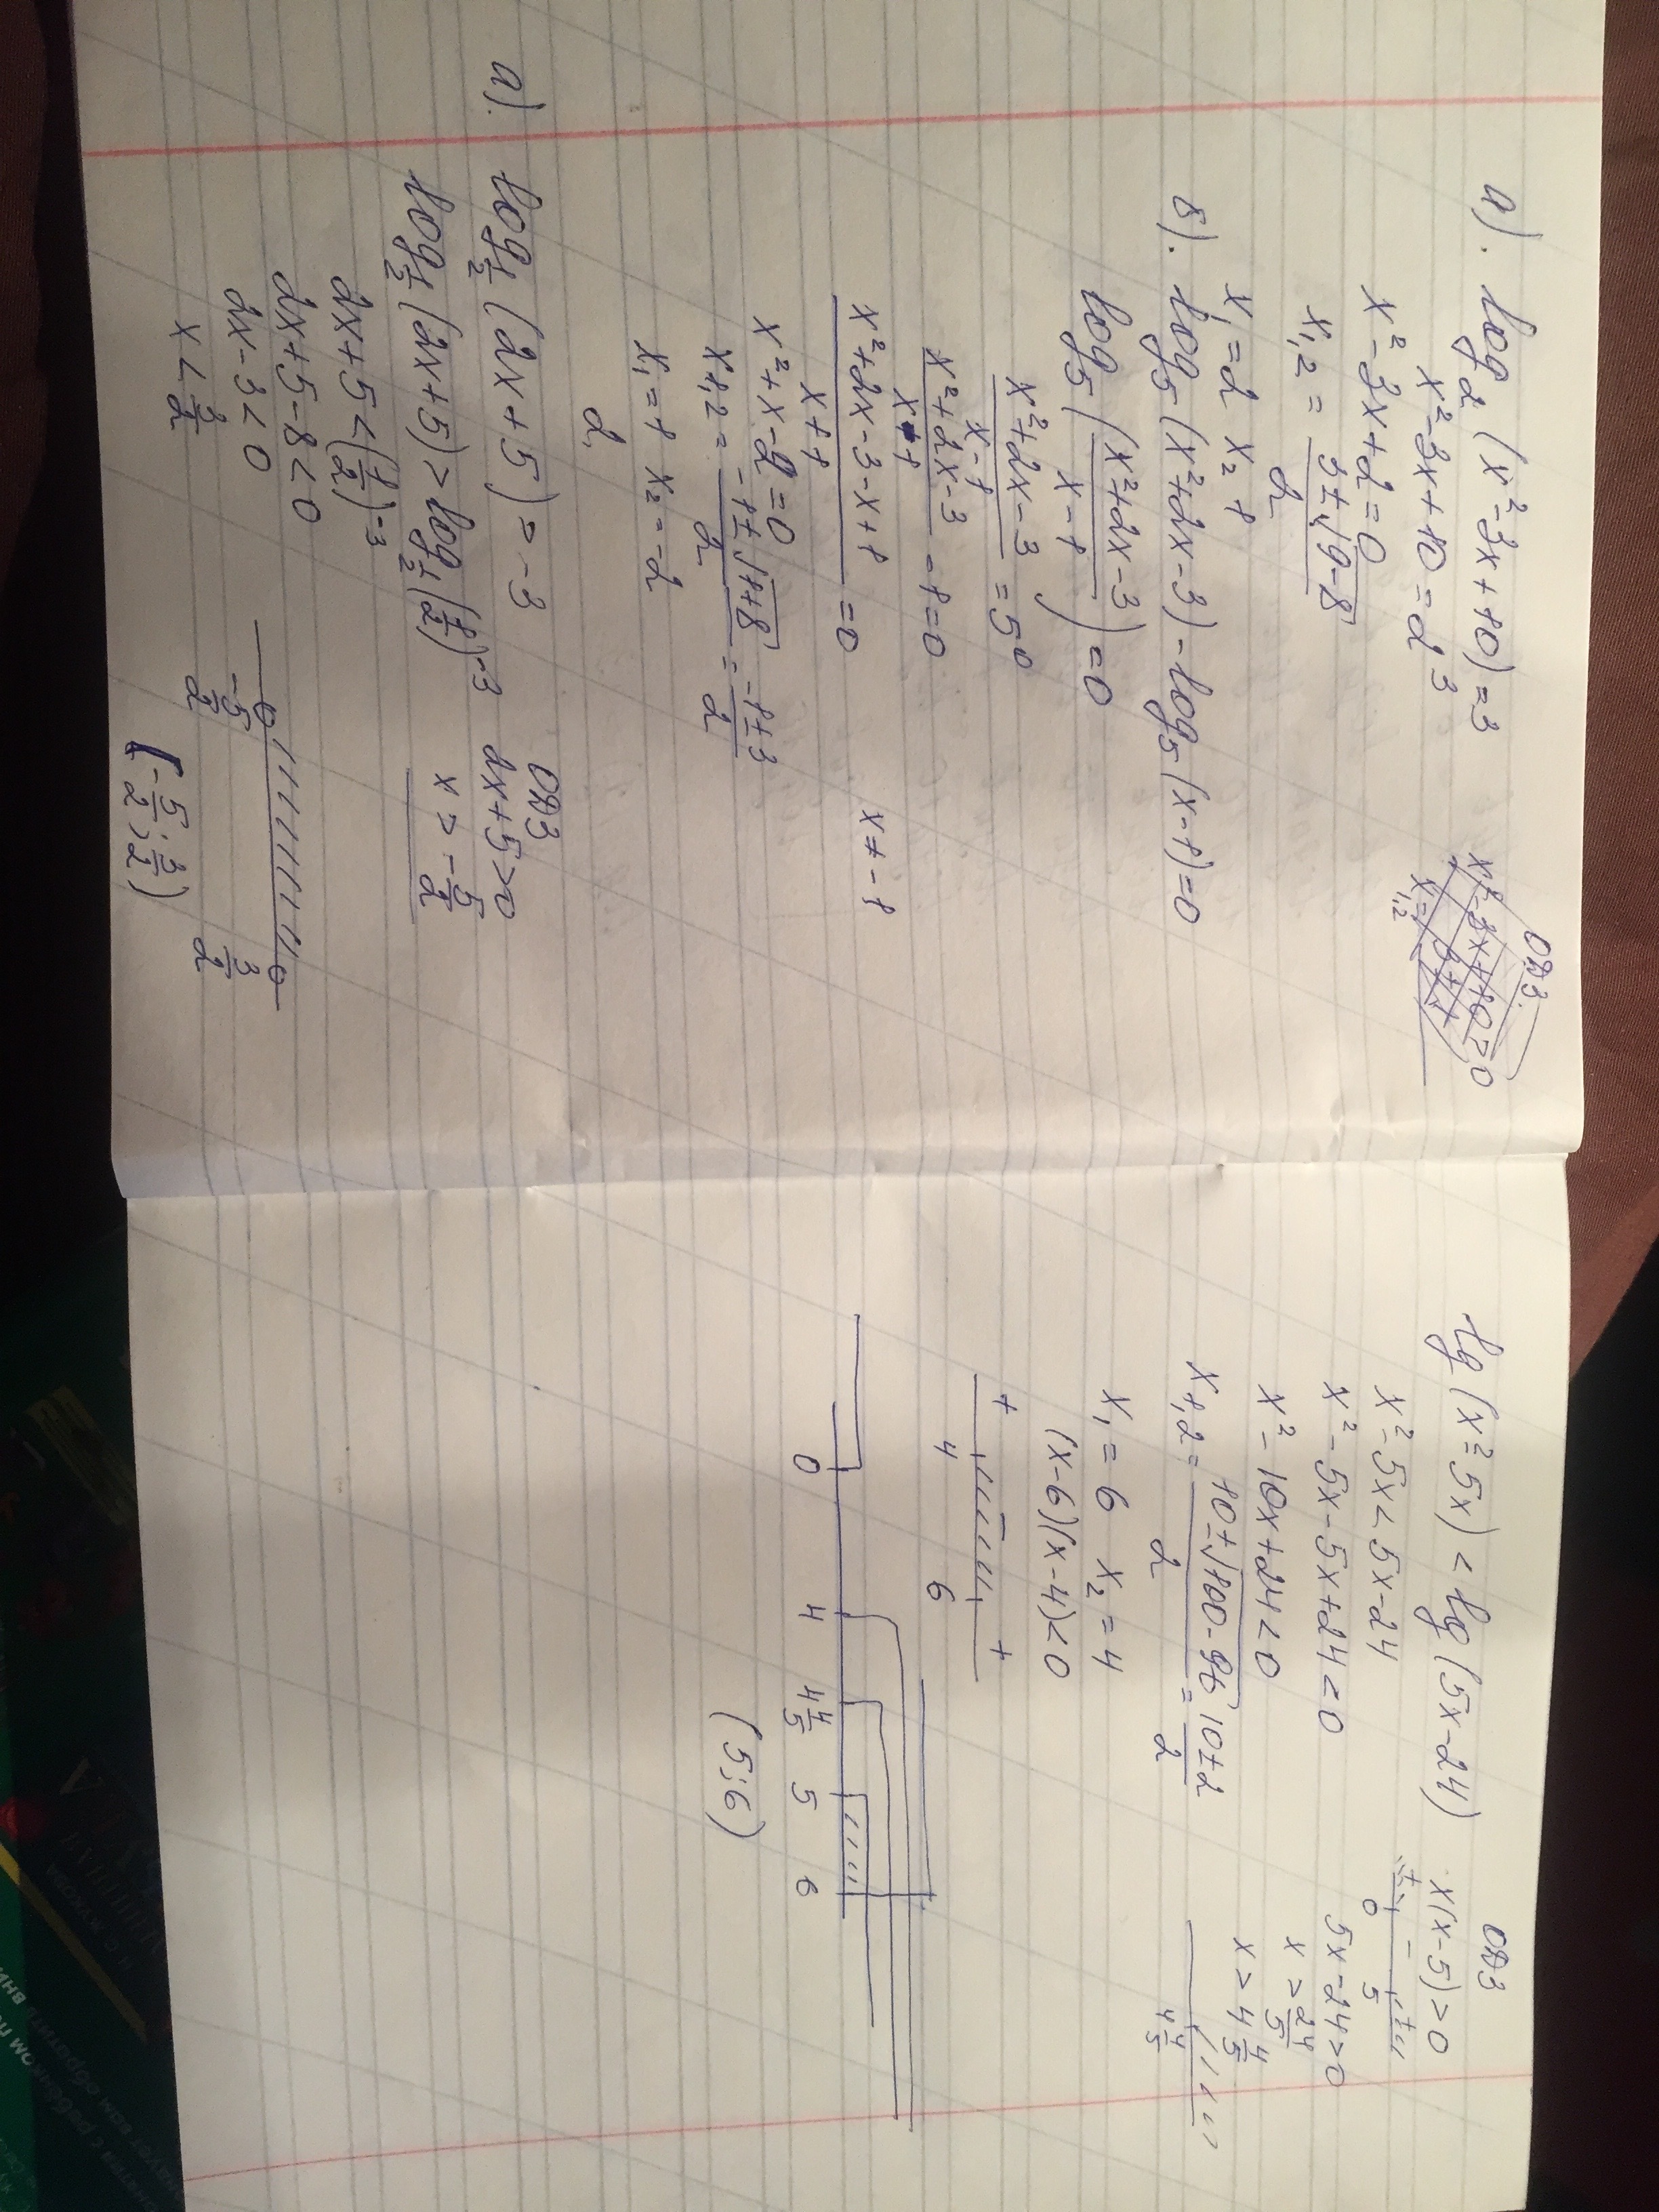 а). log₂(x²-3x+10)=3
x²-3x+10=2³
x²-3x+2=0
x₁,₂ = (3±√(9-8))/2
x₁=2 x₂ 1
ОДЗ.
x²-3x+10>0
б). log₅(x²+2x-3)-log₅(x-1)=0
log₅((x²+2x-3)/(x-1))=0
(x²+2x-3)/(x-1) = 5⁰
(x²+2x-3)/(x+1) -1=0
(x²+2x-3-x+1)/(x+1) =0
x≠-1
x²+x-2=0
x₁,₂ = (-1±√(1+8))/2 = (-1±3)/2
x₁=1 x₂=-2
2,
а). log_½(2x+5)>-3
log_½(2x+5)>log_½(½)⁻³
2x+5<(½)⁻³
2x+5-8<0
2x-3<0
x<3/2
ОДЗ
2x+5>0
x>-5/2
-5/2 3/2
(-5/2; 3/2)
lg(x²-5x)<lg(5x-24)
x²-5x<5x-24
x²-5x-5x+24<0
x²-10x+24<0
x₁,₂ = (10±√(100-96))/2 = (10±2)/2
x₁=6 x₂=4
(x-6)(x-4)<0
+ - +
4 6
ОДЗ
x(x-5)>0
+ - +
0 5
5x-24>0
x>24/5
x>4 4/5
4 4/5
0 4 4 4/5 5 6
(5;6)